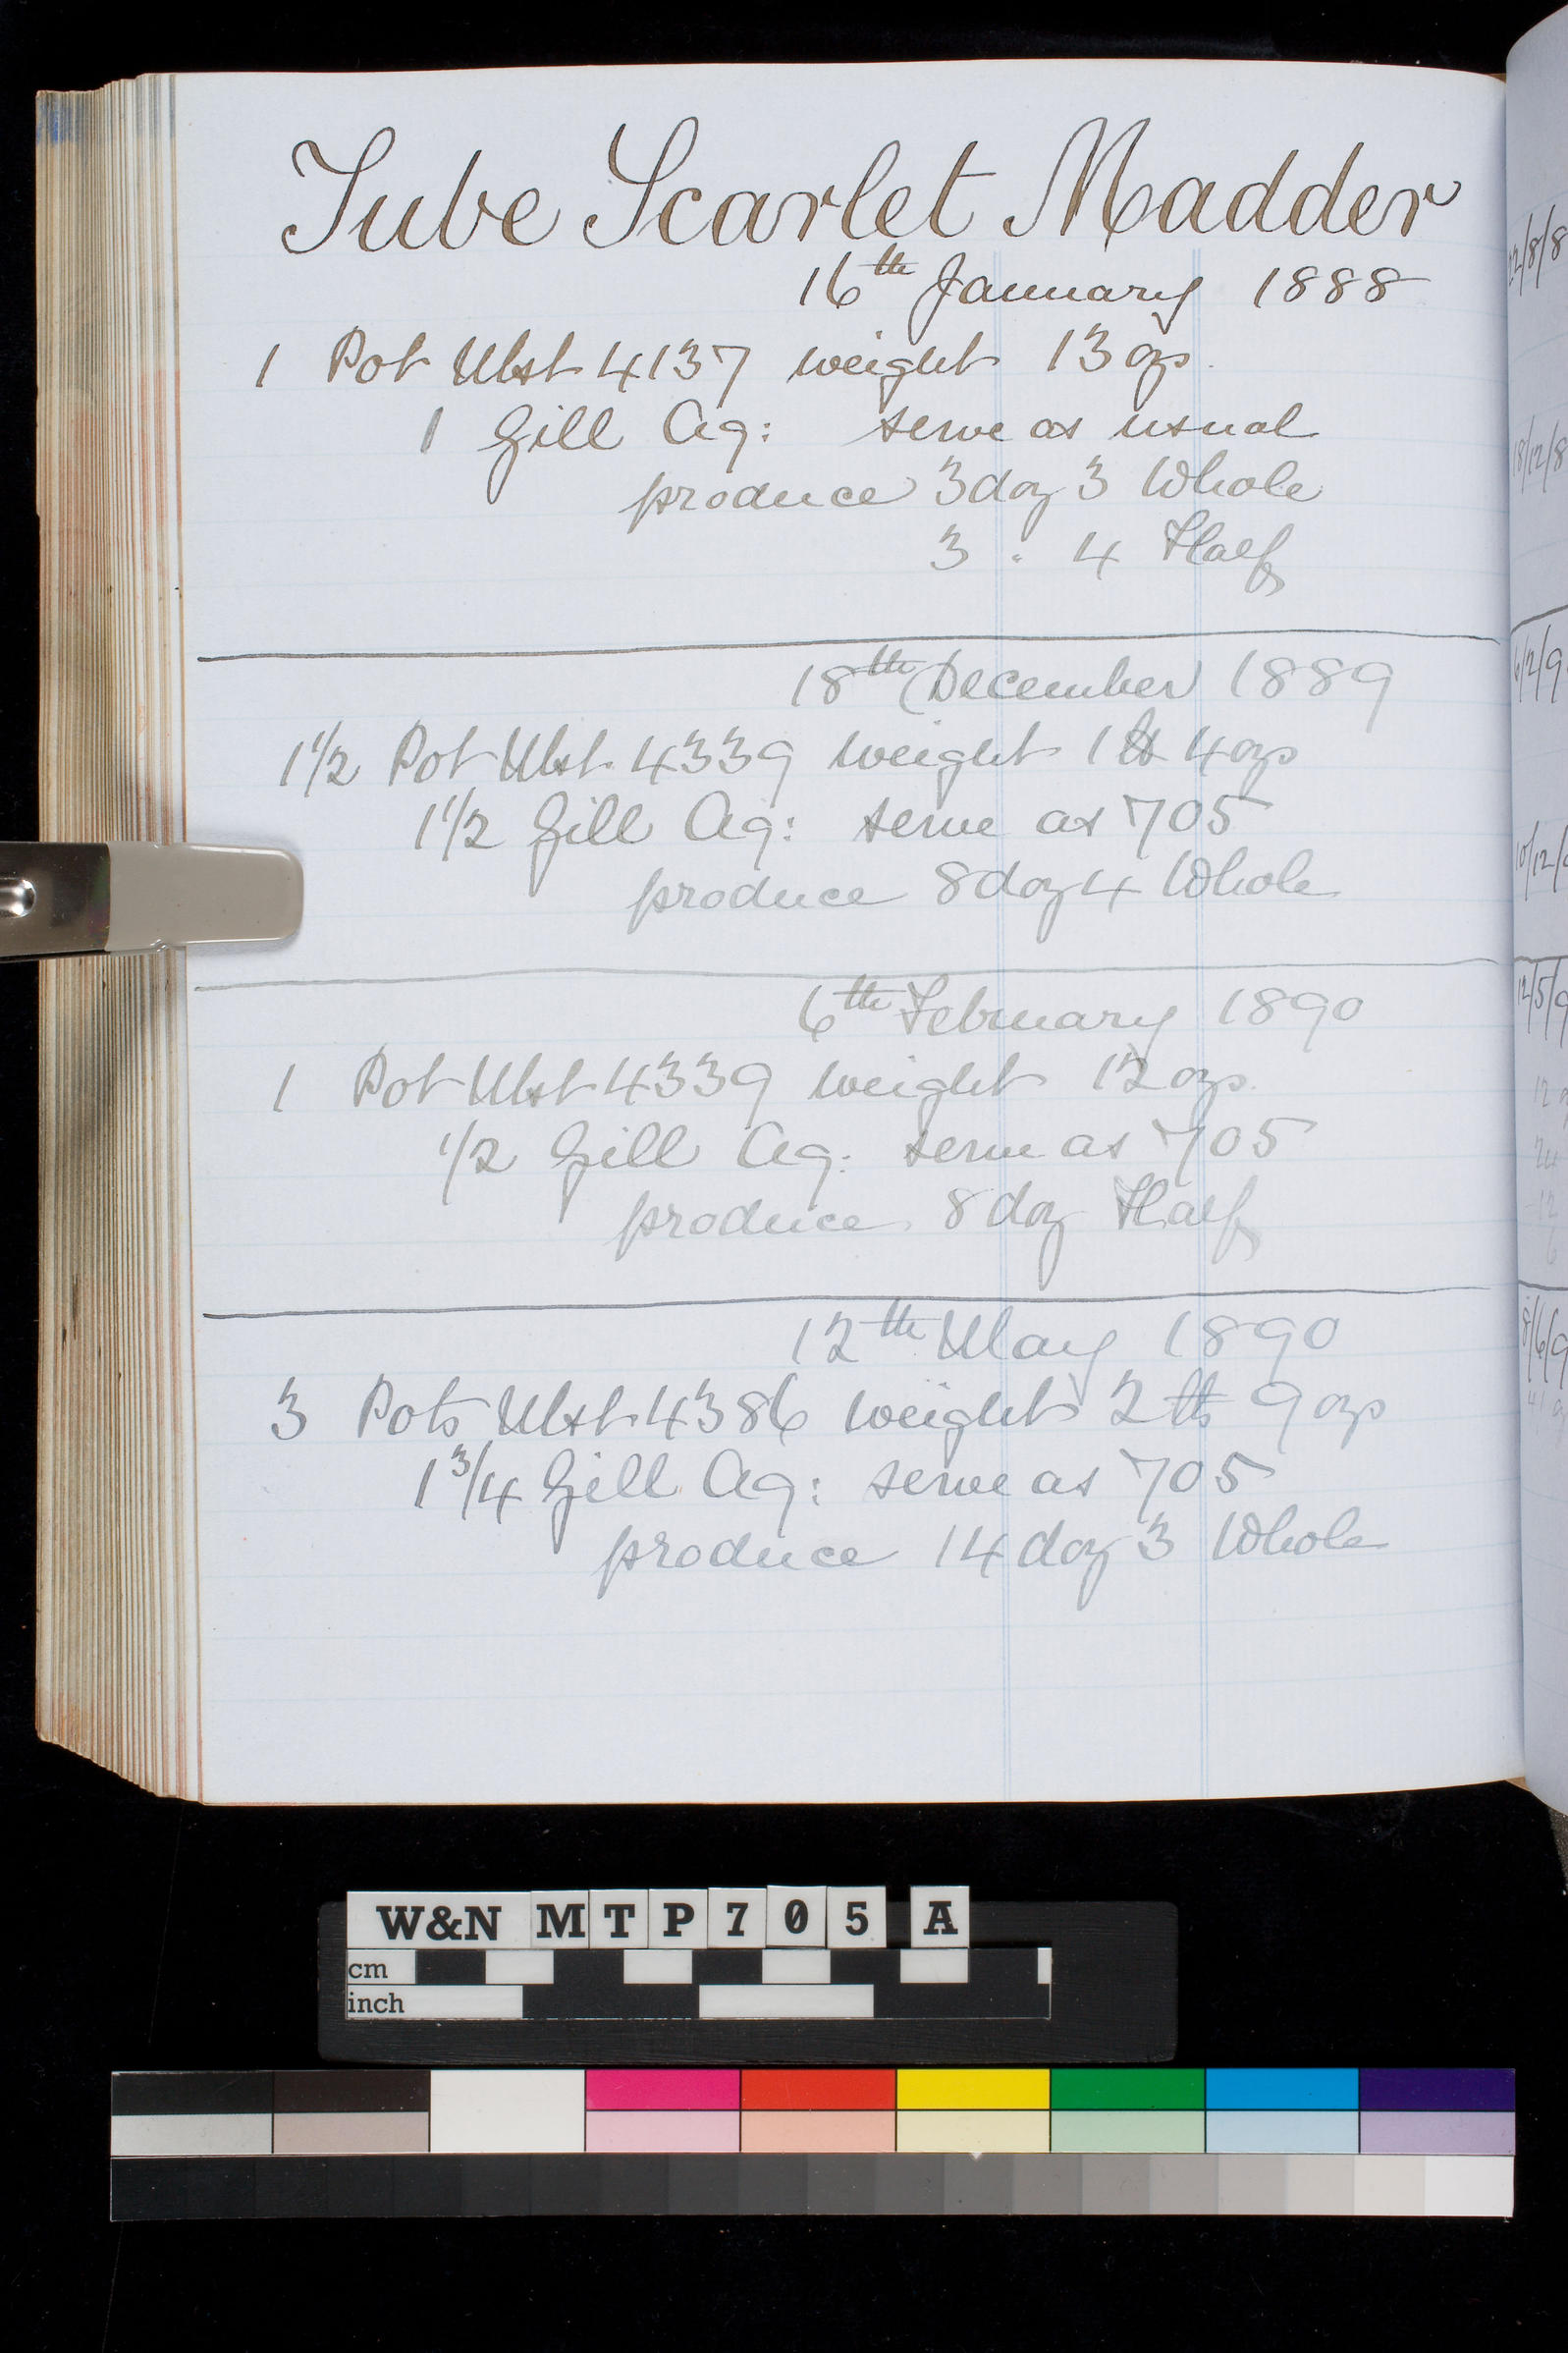 Tube Scarlet Madder
16th January 1888
1 Pot Mst 4137 weight 13 ozs
1 Gill Aq: serve as usual
produce 3 doz 3 Whole
3 " 4 Half
18th December 1889
1 1/2 Pot Mst 4339 weight 1 lb 4 ozs
1 1/2 Gill Aq: serve as 705
produce 8 doz 4 Whole
6th February 1890
1 Pot Mst 4339 weight 12 ozs
1/2 Gill Aq: serve as 705
produce 8 doz Half
12th May 1890
3 Pots Mst 4386 weight 2 lbs 9 ozs
1 3/4 Gill Aq: serve as 705
produce 14 doz 3 Whole
W&N MTP705 A
cm
inch